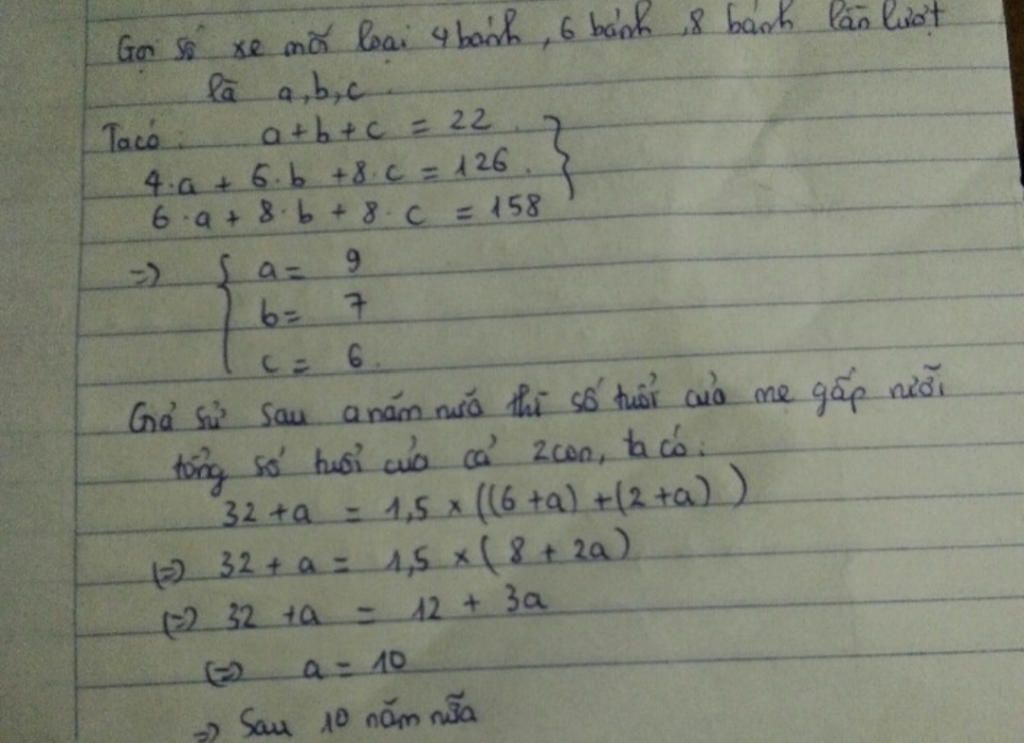 Gọi số xe mỗi loại 4 bánh, 6 bánh, 8 bánh lần lượt
là a, b, c.
Ta có: a + b + c = 22
4.a + 6.b + 8.c = 126
6.a + 8.b + 8.c = 158
=> { a = 9
b = 7
c = 6.
Giả sử sau a năm nữa thì số tuổi của mẹ gấp rưỡi
tổng số tuổi của cả 2 con, ta có:
32 + a = 1,5 x ((6 + a) + (2 + a))
(=) 32 + a = 1,5 x (8 + 2a)
(=) 32 + a = 12 + 3a
(=) a = 10
=> Sau 10 năm nữa